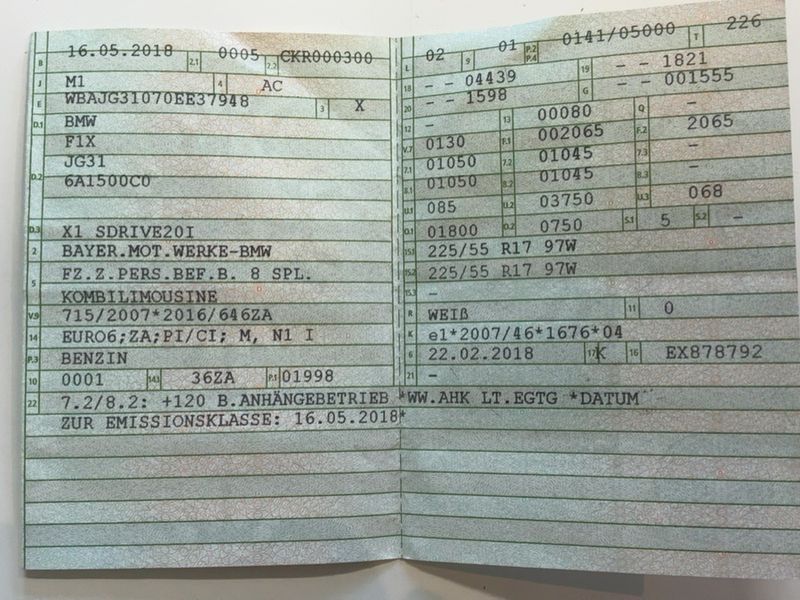 B 16.05.2018 2.1 0005 2.2 CKR000300
J M1 4 AC
E WBAJG31070EE37948 3 X
D.1 BMW
F1X
JG31
D.2 6A1500C0
D.3 X1 SDRIVE20I
2 BAYER.MOT.WERKE-BMW
5 FZ.Z.PERS.BEF.B. 8 SPL.
KOMBILIMOUSINE
V.9 715/2007*2016/646ZA
14 EURO6;ZA;PI/CI; M, N1 I
P.3 BENZIN
10 0001 14.1 36ZA P.1 01998
L 02 9 01 P.2 P.4 0141/05000 T 226
18 - - 04439 19 - - 1821
20 - - 1598 G - - 001555
- 13 00080 Q -
V.7 0130 F.1 002065 F.2 2065
7.1 01050 7.2 01045 7.3 -
8.1 01050 8.2 01045 8.3 -
U.1 085 U.2 03750 U.3 068
O.1 01800 O.2 0750 S.1 5 S.2 -
15.1 225/55 R17 97W
15.2 225/55 R17 97W
15.3 -
R WEIß 11 0
K e1*2007/46*1676*04
6 22.02.2018 17 K 16 EX878792
21 -
22 7.2/8.2: +120 B.ANHÄNGEBETRIEB *WW.AHK LT.EGTG *DATUM
ZUR EMISSIONSKLASSE: 16.05.2018*